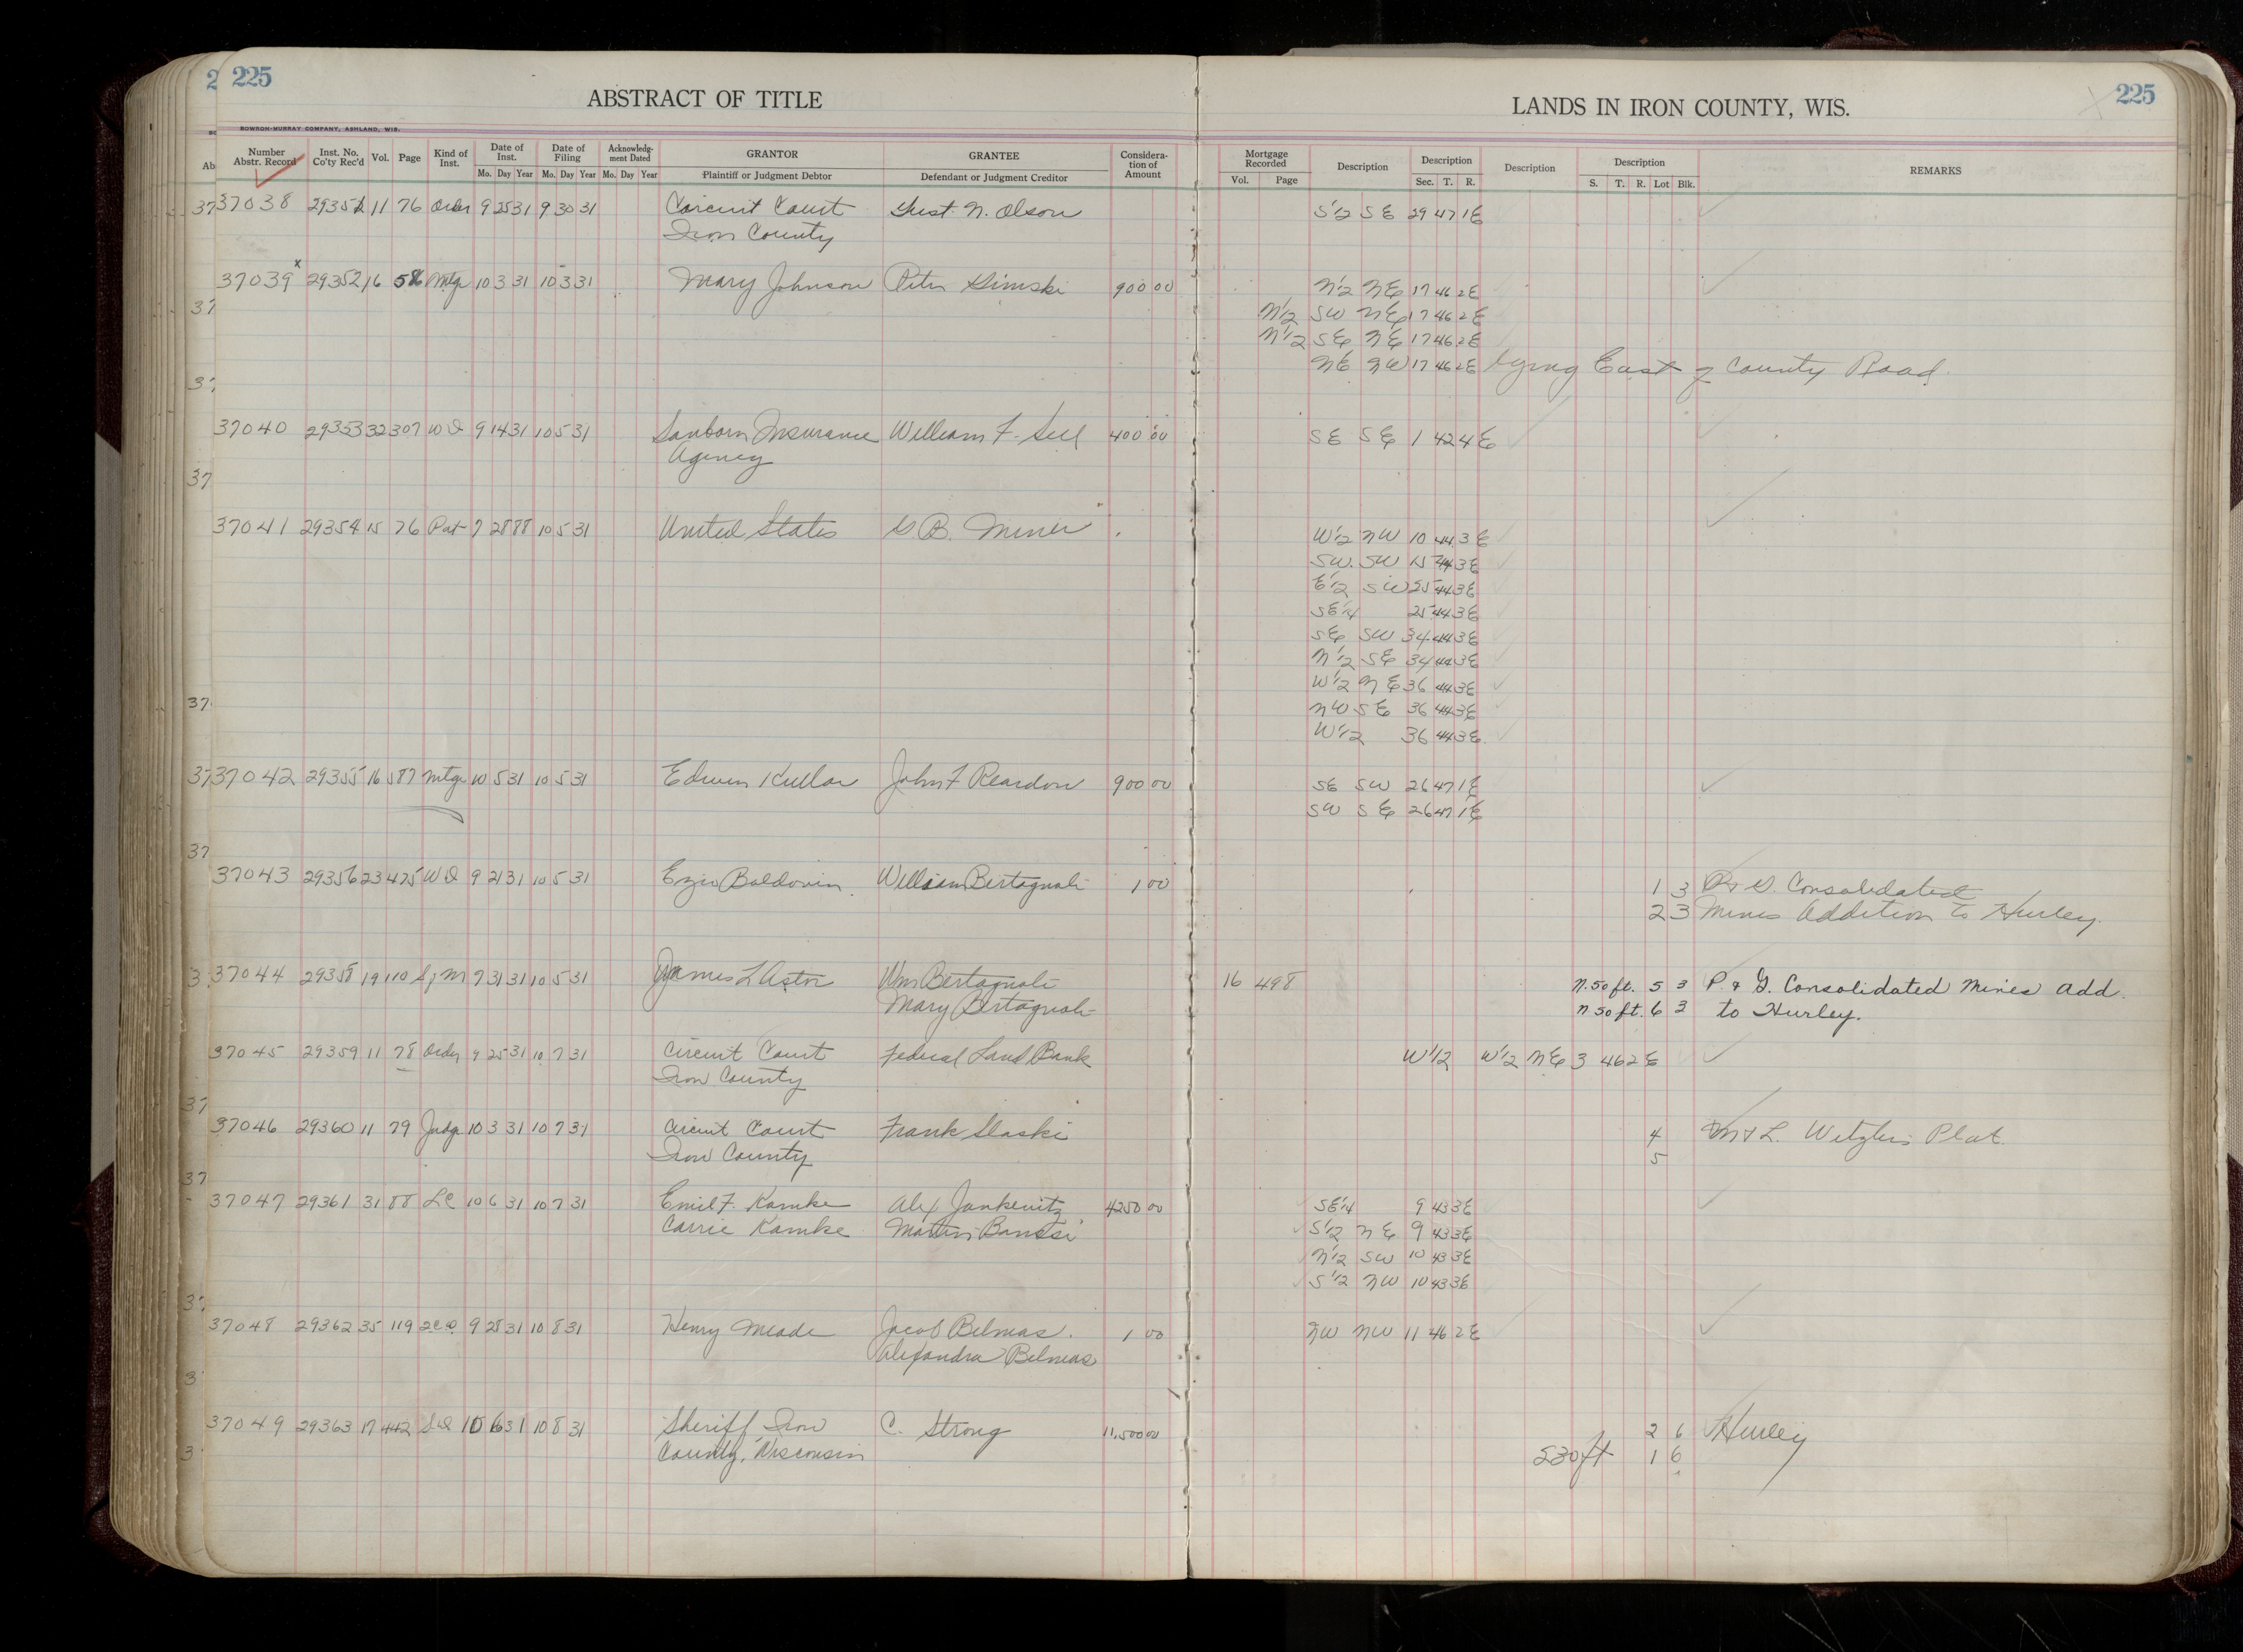 225
ABSTRACT OF TITLE
LANDS IN IRON COUNTY, WIS.
225
BOWRON-MURRAY COMPANY, ASHLAND, WIS.
Number Abstr. Record Inst. No. Co'ty Rec'd Vol. Page Kind of Inst. Date of Inst. Mo. Day Year Date of Filing Mo. Day Year Acknowledgment Dated Mo. Day Year GRANTOR Plaintiff or Judgment Debtor GRANTEE Defendant or Judgment Creditor Consideration of Amount Mortgage Recorded Vol. Page Description Description Sec. T. R. Description Description S. T. R. Lot Blk. REMARKS
37038 29351 11 76 Order 9 25 31 9 30 31 Circuit Court Gust. N. Olson S1/2 SE 29 47 1E
Iron County
37039 x 29352 16 586 Mtge 10 3 31 10 3 31 Mary Johnson Peter Simski 900 00 N1/2 NE 17 46 2E
N1/2 SW NE 17 46 2E
N1/2 SE NE 17 46 2E
NE NW 17 46 2E lying East of County Road.
37040 29353 32 307 WD 9 14 31 10 5 31 Sanborn Insurance William F. 400 00 SE SE 1 42 4E
Agency
37041 29354 15 76 Pat 7 28 88 10 5 31 United States B. Miner W1/2 NW 10 44 3E
SW. SW 15 44 3E
E1/2 SW 25 44 3E
SE1/4 25 44 3E
SE SW 34 44 3E
N1/2 SE 34 44 3E
W1/2 NE 36 44 3E
NW SE 36 44 3E
W1/2 36 44 3E
37042 29355 16 587 Mtge 10 5 31 10 5 31 Edwin Kullar John F Reardon 900 00 SE SW 26 47 1E
SW SE 26 47 1E
37043 29356 23 475 WD 9 21 31 10 5 31 Ezio Baldovin. William Bertagnoli 1 00 1 3 P & G. Consolidated
2 3 Mines Addition to Hurley.
37044 29358 19 110 S/M 7 31 31 10 5 31 James L Astor Wm Bertagnoli 16 498 N. 50 ft. 5 3 P. & G. Consolidated Mines Add.
Mary Bertagnoli N. 50 ft. 6 3 to Hurley.
37045 29359 11 78 Order 9 25 31 10 7 31 Circuit Court Federal Land Bank W1/2 W1/2 NE 3 46 2E
Iron County
37046 29360 11 79 Judge 10 3 31 10 7 31 Circuit Court Frank Slaski 4 M & L. Wetzler's Plat.
Iron County 5
37047 29361 31 88 LC 10 6 31 10 7 31 Emil F. Kamke Alex Jankevitz 4250 00 SE1/4 9 43 3E
Carrie Kamke S1/2 NE 9 43 3E
N1/2 SW 10 43 3E
S1/2 NW 10 43 3E
37048 29362 35 119 2CD 9 28 31 10 8 31 Henry Meade Jacob Belmas. 1 00 NW NW 11 46 2E
Alexandra Belmas
37049 29363 17 442 SD 10 6 31 10 8 31 Sheriff Iron C. Strong 11,500 00 2 6 Hurley
County, Wisconsin S30ft 1 6